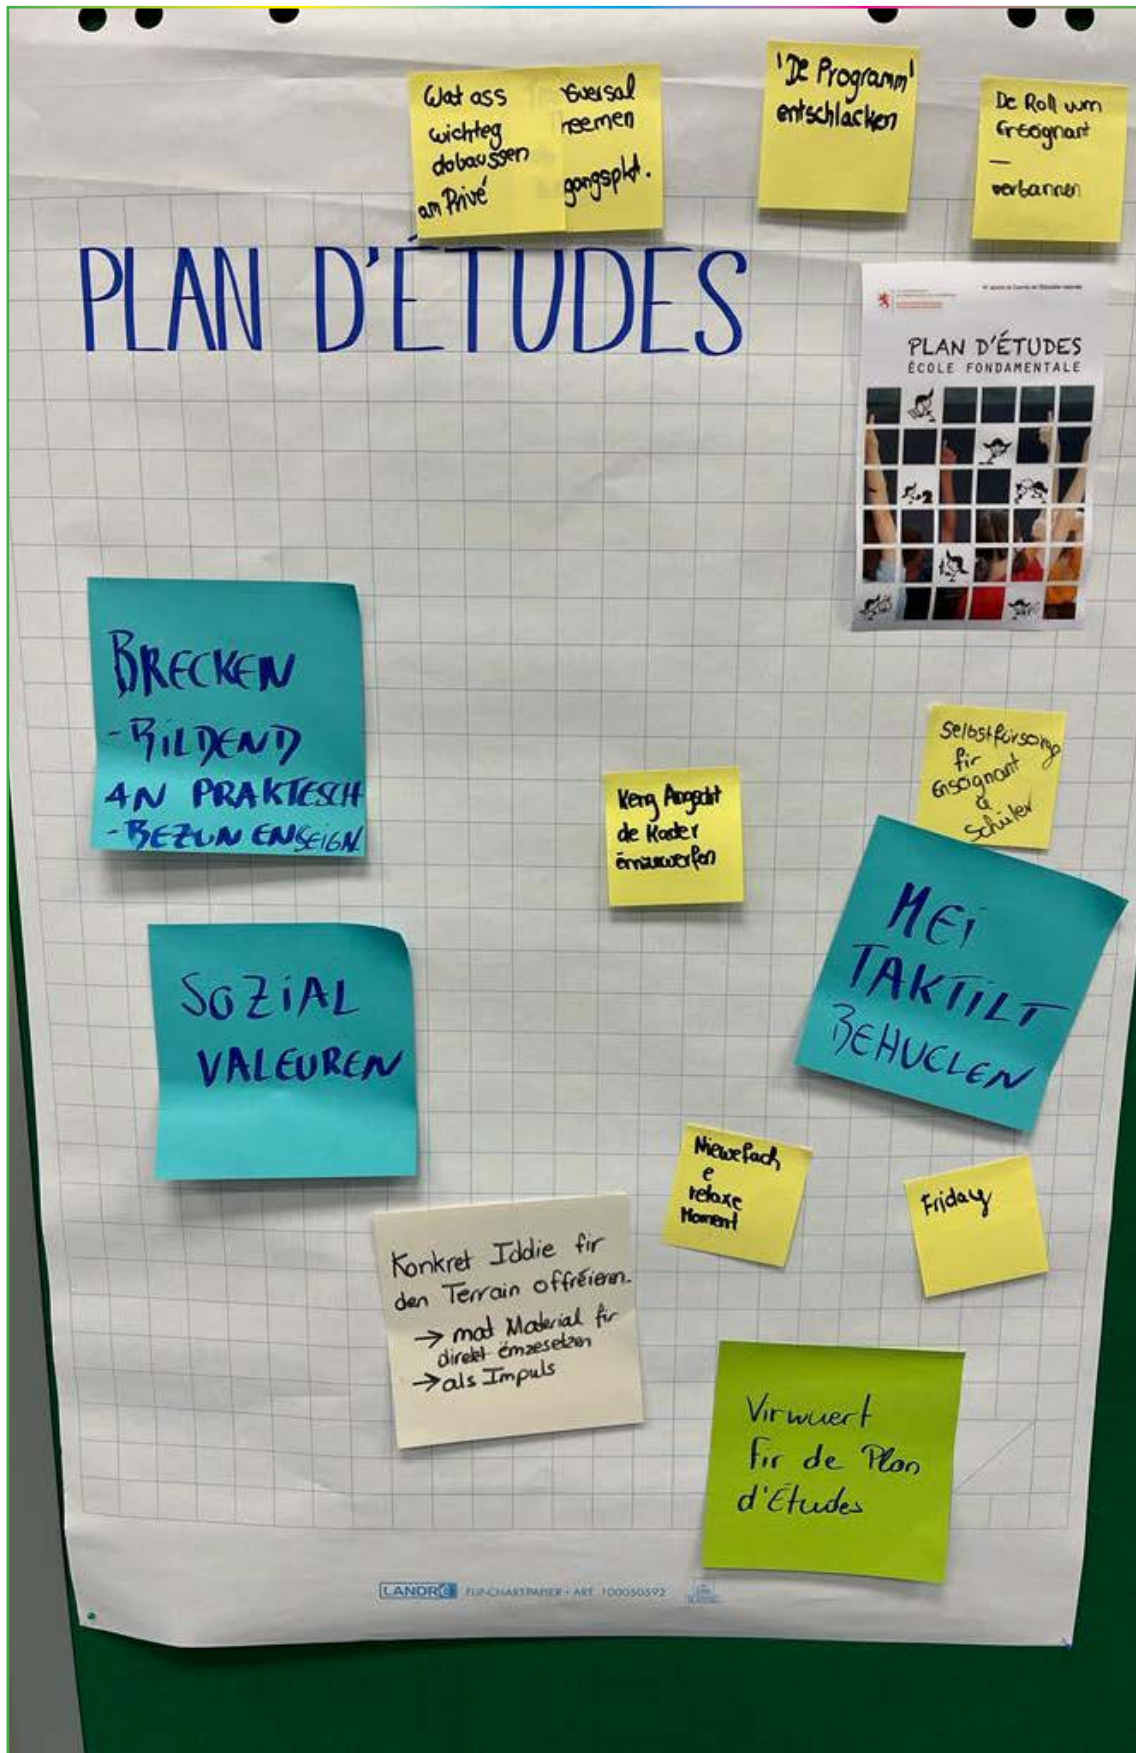 Wat ass
wichteg
dobaussen
am Privé
versal
neemen
gangspkt.
'De Programm'
entschlacken
De Roll vum
Enseignant
—
verbannen
PLAN D'ÉTUDES
PLAN D'ÉTUDES
ÉCOLE FONDAMENTALE
BRECKEN
-BILDEND
AN PRAKTESCH
-BEZUN ENSEIGN.
Selbstfürsorge
fir
Enseignant
&
Schüler
Keng Angscht
de Kader
ëmzuwerfen
MEI
TAKTILT
BEHUELEN
SOZIAL
VALEUREN
Niewefach
e
relaxe
Moment
Friday
Konkret Iddie fir
den Terrain offréieren.
→ mat Material fir
direkt ëmzesetzen
→ als Impuls
Virwuert
fir de Plan
d'Études
LANDRÉ FLIPCHARTPAPIER • ART. 100050592